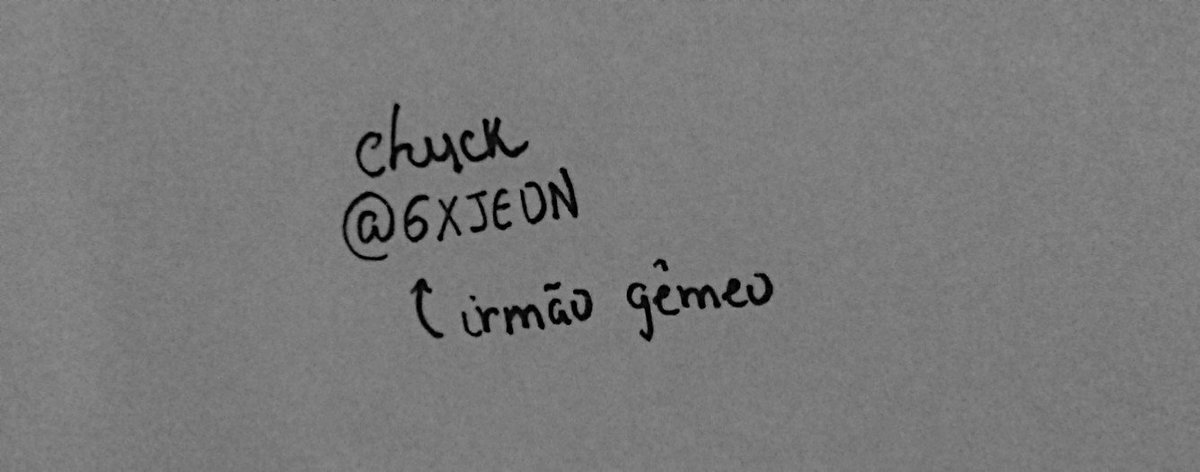 chuck
@GXJEON
↑ irmão gêmeo